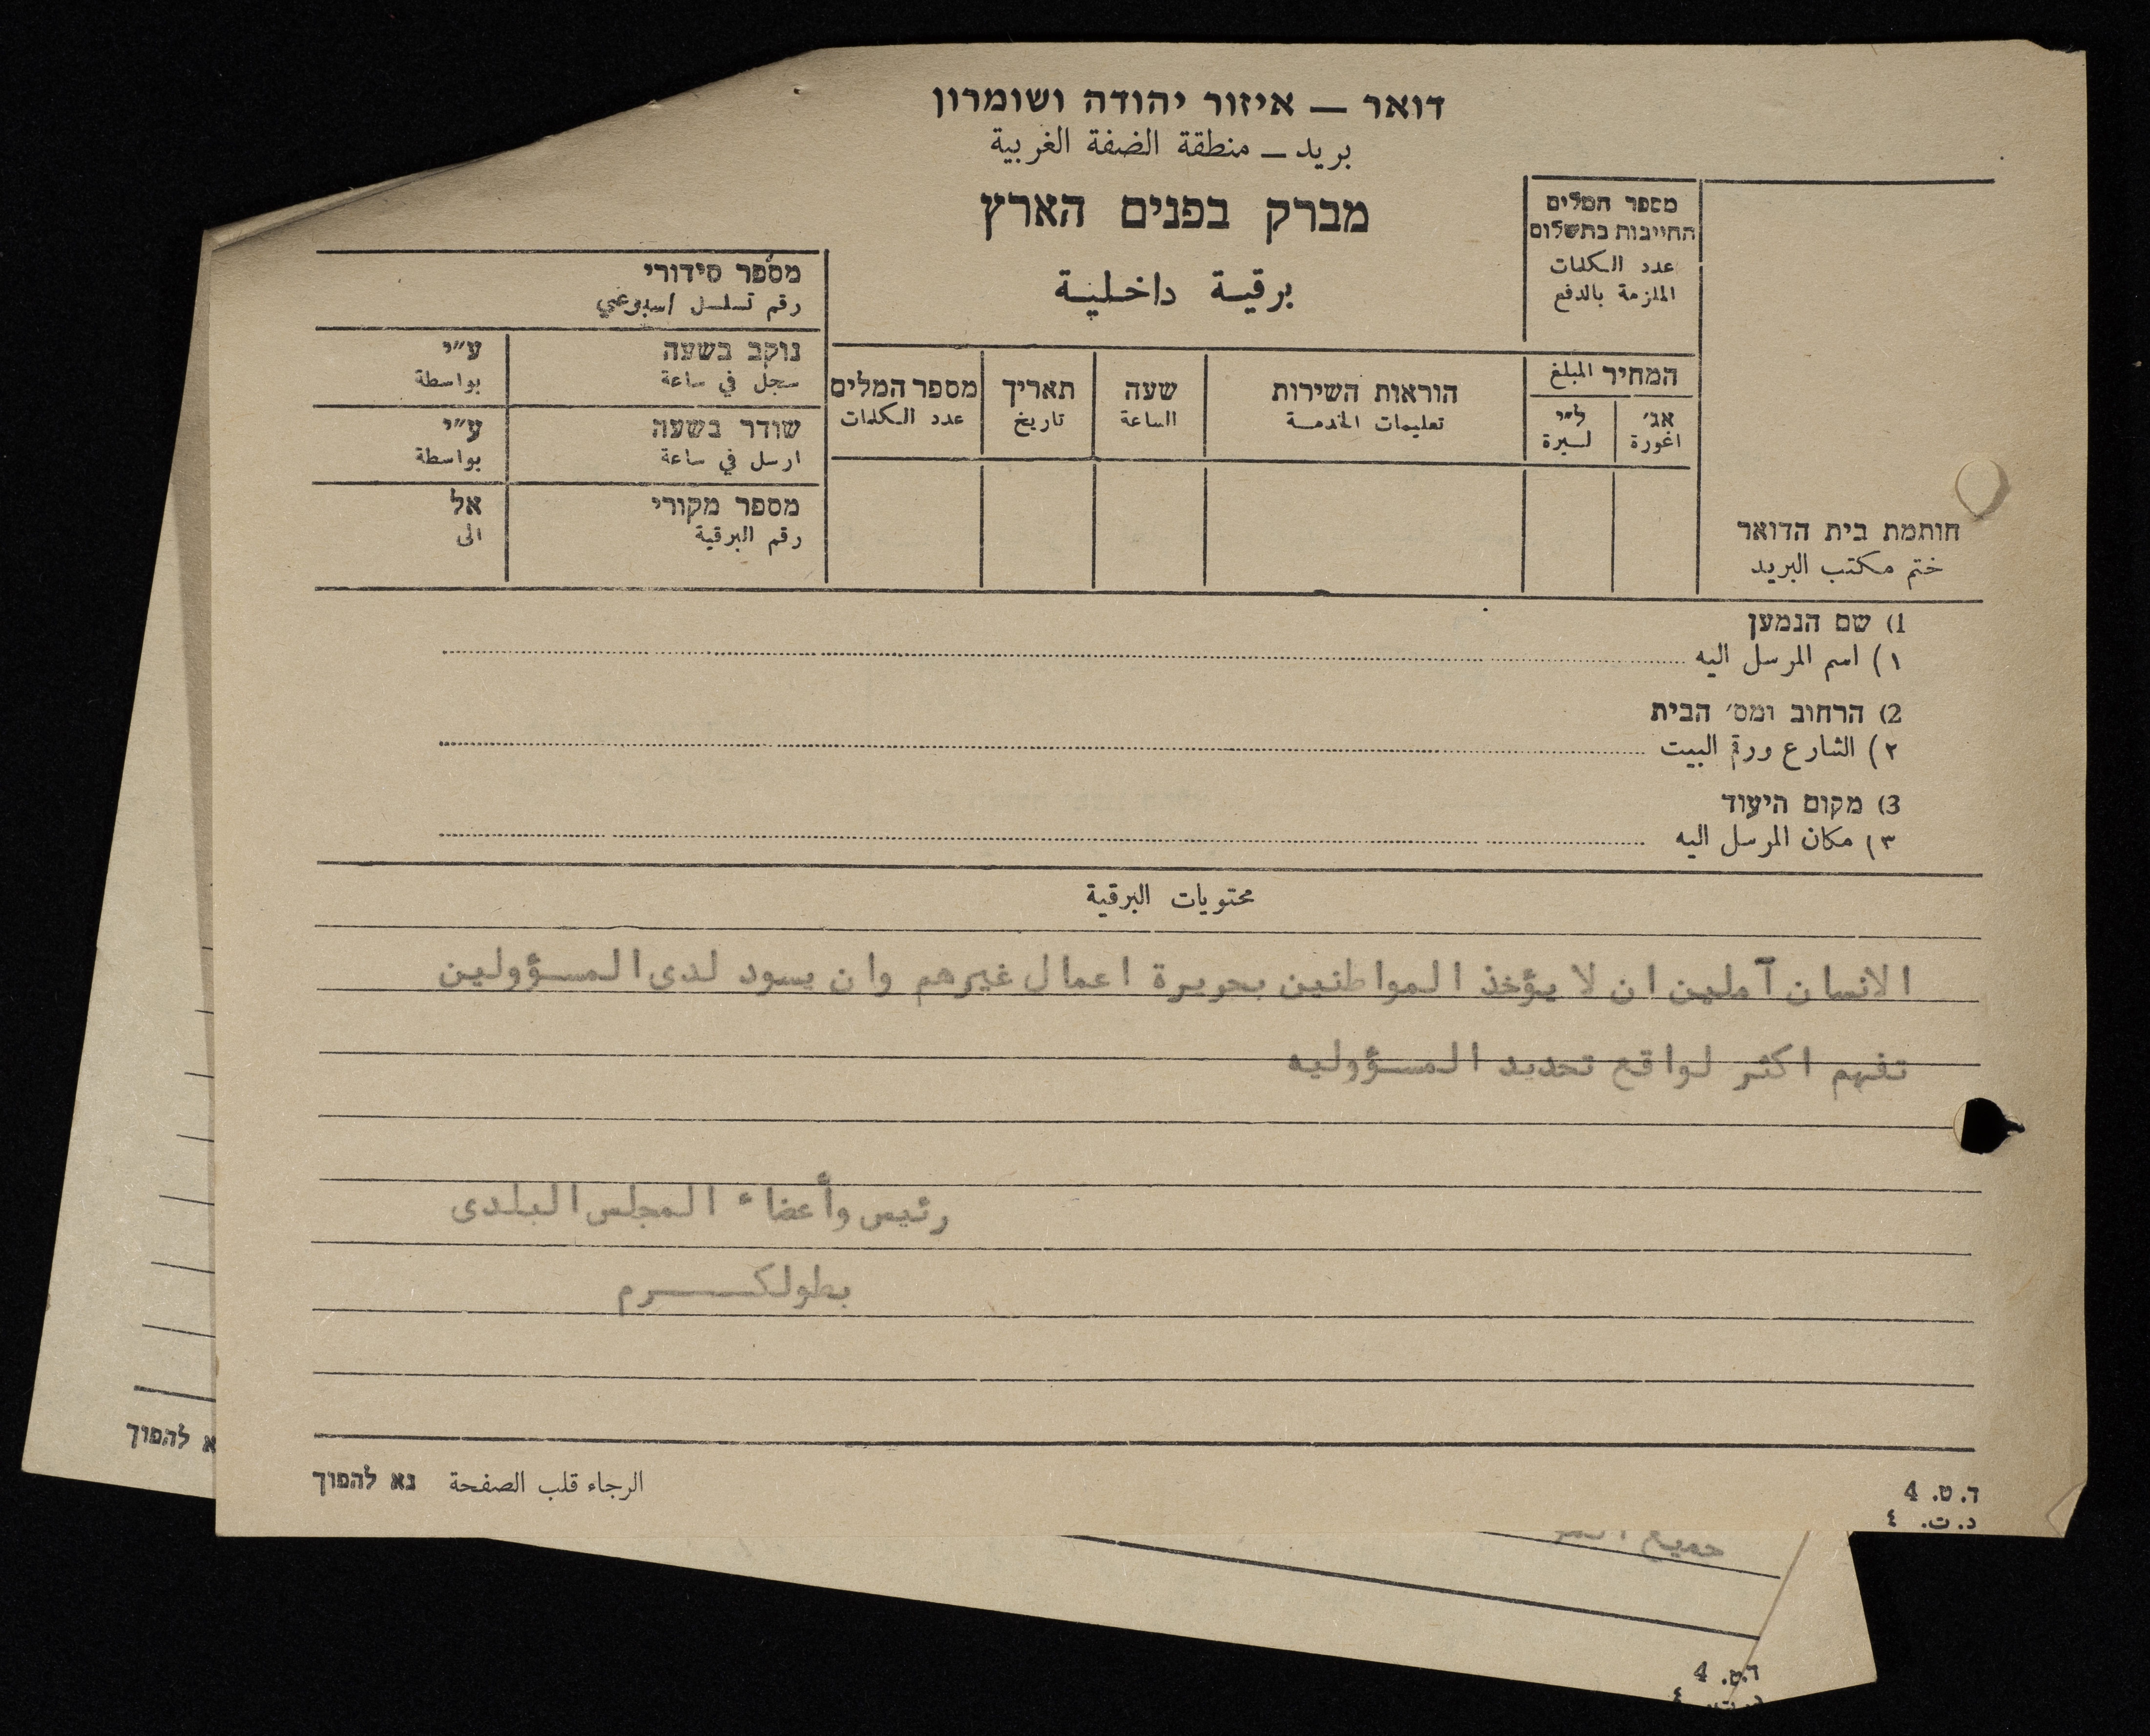 דואר — איזור יהודה ושומרון
بريد — منطقة الضفة الغربية
מברק בפנים הארץ
برقية داخلية
מספר המלים
החייבות בתשלום
عدد الكلمات
الملزمة بالدفع
המחיר المبلغ
אג׳ ל״י
اغورة لسيرة
הוראות השירות
تعليمات الخدمة
שעה
الساعة
תאריך
تاريخ
מספר המלים
عدد الكلمات
מספר סידורי
رقم تسلسل اسبوعي
נוקב בשעה ע״י
سجل في ساعة بواسطة
שודר בשעה ע״י
ارسل في ساعة بواسطة
מספר מקורי אל
رقم البرقية الى
חותמת בית הדואר
ختم مكتب البريد
1) שם הנמען
١) اسم المرسل اليه
2) הרחוב ומס׳ הבית
٢) الشارع ورقم البيت
3) מקום היעוד
٣) مكان المرسل اليه
محتويات البرقية
الانسان آملين ان لا يؤخذ المواطنين بجريرة اعمال غيرهم وان يسود لدى المسؤولين
تفهم اكثر لواقع تحديد المسؤوليه
رئيس وأعضاء المجلس البلدى
بطولكـــــرم
الرجاء قلب الصفحة נא להפוך
ד. ט. 4
د. ت. ٤
א להפוך
جميع
ד.ט. 4